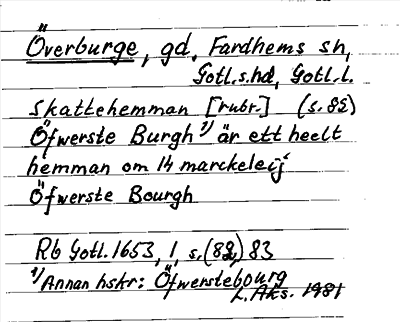 Överburge, gd, Fardhems sn,
Gotl.s.hd, Gotl.l.
Skattehemman [rubr.] (s. 82)
Öfwerste Burgh 1) är ett heelt
hemman om 14 marckeleij
Öfwerste Bourgh
Rb Gotl. 1653, 1, s. (82) 83
1) Annan hskr: Öfwerstebourg
L. Aks. 1981